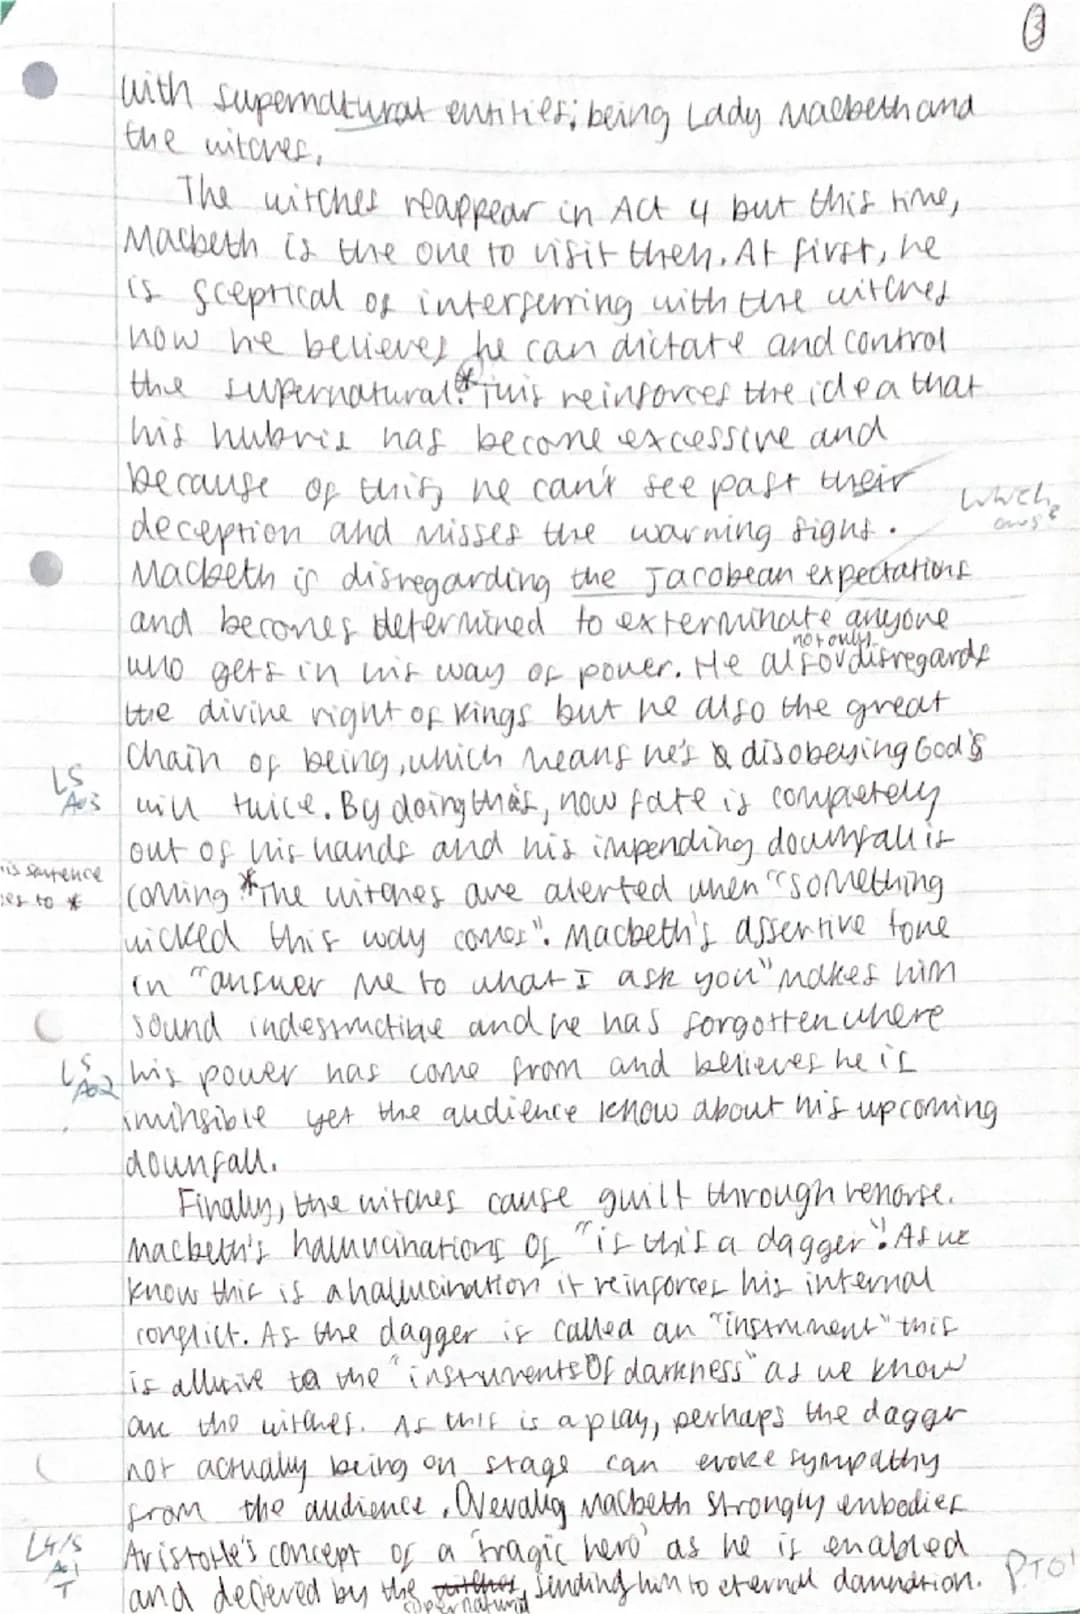 3
with supernatural entities; being Lady Macbeth and
the witches.
The witches reappear in Act 4 but this time,
Macbeth is the one to visit them. At first, he
is sceptical of interferring with the witches
now he believes he can dictate and control
the supernatural.* This reinforces the idea that
his hubris has become excessive and
because of this, he can't see past their
deception and misses the warning signs.
Which
ones?
Macbeth is disregarding the Jacobean expectations
and becomes determined to exterminate anyone
not only
who gets in his way of power. He also disregards
the divine right of kings but he also the great
Chain of being, which means he's disobeying God's
L5
AO3
will twice. By doing this, now fate is completely
out of his hands and his impending downfall is
sentence
to *
coming * The witches are alerted when "something
wicked this way comes". Macbeth's assertive tone
in "answer me to what I ask you" makes him
sound indestructible and he has forgotten where
L5
AO2
his power has come from and believes he is
yet the audience know about his upcoming
downfall.
Finally, the witches cause guilt through remorse.
Macbeth's hallucinations of "is this a dagger". As we
know this is a hallucination it reinforces his internal
conflict. As the dagger is called an "instrument" this
is allusive to the "instruments Of darkness" as we know
are the witches. As this is a play, perhaps the dagger
not actually being on stage can evoke sympathy
from the audience. Overally Macbeth strongly embodies
L4/5
AO1
T
Aristotle's concept of a 'tragic hero' as he is enabled
and deceived by the witches, sending him to eternal damnation.
supernatural
P.TO!